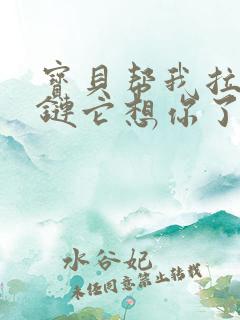 寶貝帮我拉
鏈它想你了
水谷妃
未经同意禁止转载